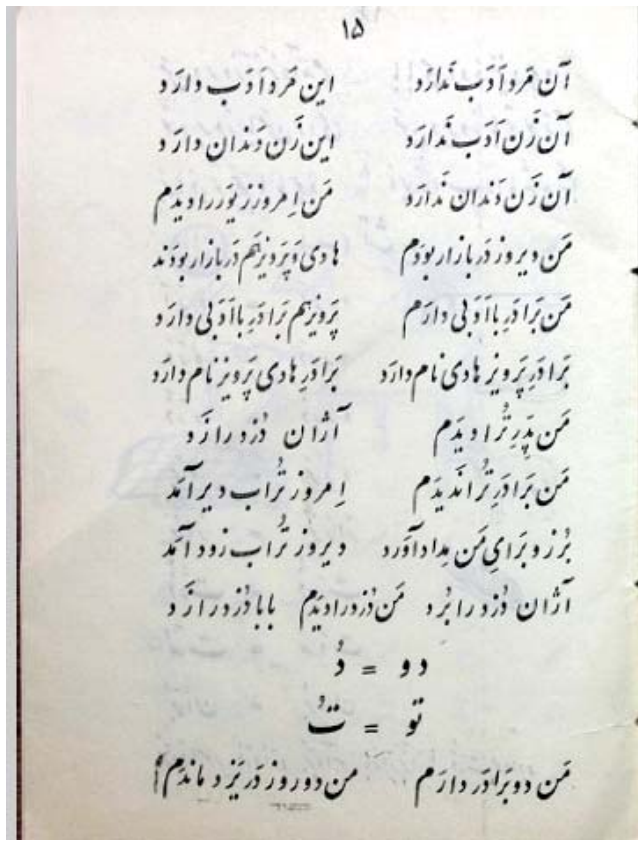 ۱۵
آن مَرد اَدَب نَدارَد این مَرد اَدَب دارَد
آن زَن اَدَب نَدارَد این زَن دَندان دارَد
آن زَن دَندان نَدارَد مَن اِمروز زَنبور را دیدَم
مَن دیروز دَر بازار بودَم هادی وَ پَرویز هَم دَر بازار بودَند
مَن بَرادَرِ بااَدَبی دارَم پَرویز هَم بَرادَرِ بااَدَبی دارَد
بَرادَرِ پَرویز هادی نام دارَد بَرادَرِ هادی پَرویز نام دارَد
مَن پِدَرِ تُرا دیدَم آژان دُزد را زَد
مَن بَرادَرِ تُرا نَدیدَم اِمروز تُراب دیر آمَد
بُرزو بَرایِ مَن مِداد آوَرد دیروز تُراب زود آمَد
آژان دُزد را بُرد مَن دُزد را دیدَم بابا دُزد را زَد
دو = دُ
تو = تُ
مَن دو بَرادَر دارَم مَن دو روز دَر یَزد ماندَم